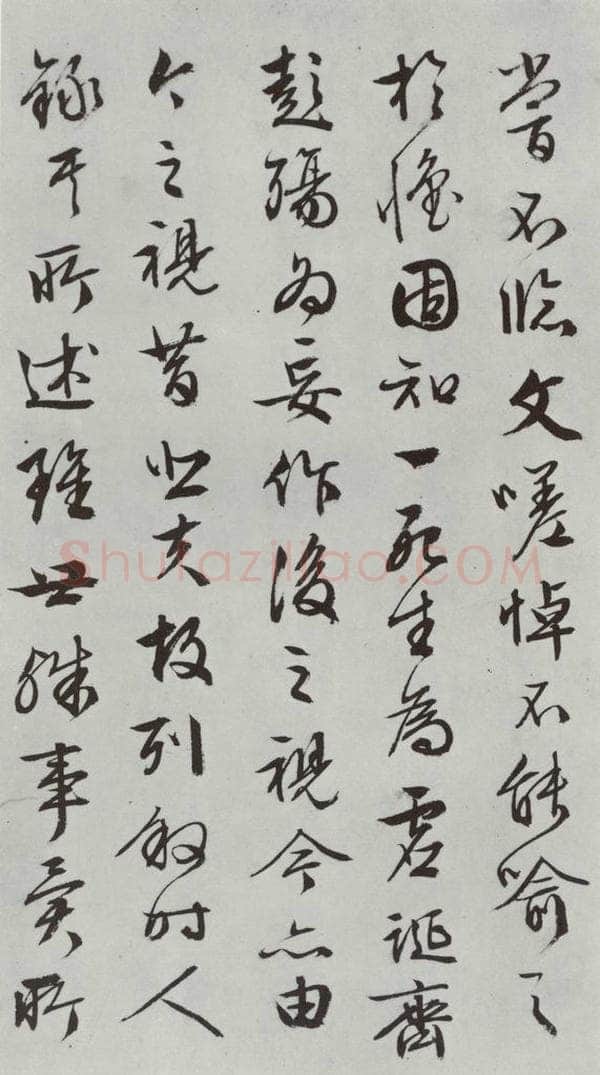 嘗不臨文嗟悼不能喻之
於懷固知一死生為虛誕齊
彭殤為妄作後之視今亦由
今之視昔悲夫故列敘時人
錄其所述雖世殊事異所
Shufaziliao.COM